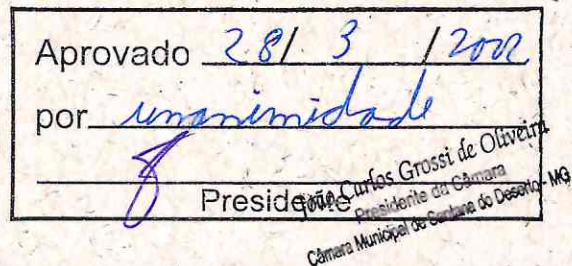 Aprovado 28/ 3 /2002
por unanimidade
Presidente
João Carlos Grossi de Oliveira
Presidente da Câmara
Câmara Municipal de Santana do Deserto - MG